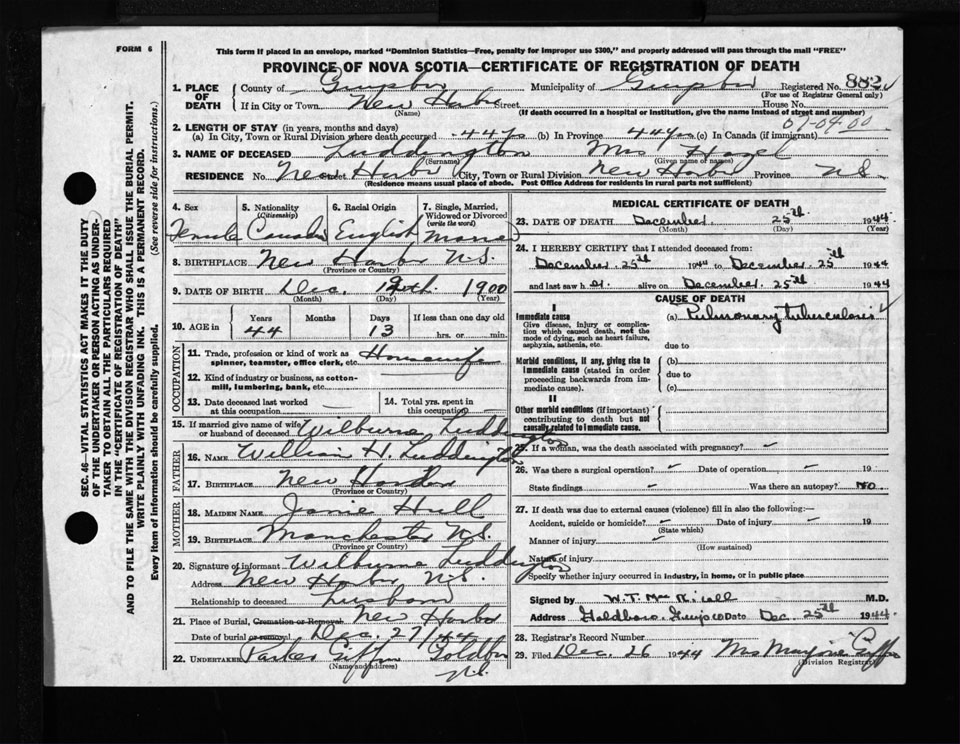 FORM 6
This form if placed in an envelope, marked "Dominion Statistics—Free, penalty for improper use $300," and properly addressed will pass through the mail "FREE"
PROVINCE OF NOVA SCOTIA—CERTIFICATE OF REGISTRATION OF DEATH
1. PLACE OF DEATH
County of Guysboro Municipality of Guysboro Registered No. 882
(For use of Registrar General only)
If in City or Town New Harbor Street House No.
(Name) (If death occurred in a hospital or institution, give the name instead of street and number)
07-04-00
2. LENGTH OF STAY (in years, months and days)
(a) In City, Town or Rural Division where death occurred 44 yrs (b) In Province 44 yrs (c) In Canada (if immigrant)
3. NAME OF DECEASED Luddington Mrs Hazel
(Surname) (Given name or names)
RESIDENCE No. New Harbor Street (City, Town or Rural Division New Harbor Province N.S.
(Residence means usual place of abode. Post Office Address for residents in rural parts not sufficient)
4. Sex 5. Nationality (Citizenship) 6. Racial Origin 7. Single, Married, Widowed or Divorced (write the word)
Female Canada English Married
8. BIRTHPLACE New Harbor N.S.
(Province or Country)
9. DATE OF BIRTH Dec. 12th. 1900
(Month) (Day) (Year)
10. AGE in Years Months Days If less than one day old
44 13 hrs. or min.
OCCUPATION
11. Trade, profession or kind of work as spinner, teamster, office clerk, etc. Housewife
12. Kind of industry or business, as cotton-mill, lumbering, bank, etc.
13. Date deceased last worked at this occupation
14. Total yrs. spent in this occupation
15. If married give name of wife or husband of deceased Wilburne Luddington
FATHER
16. NAME William H. Luddington
17. BIRTHPLACE New Harbor
(Province or Country)
MOTHER
18. MAIDEN NAME Janie Hull
19. BIRTHPLACE Manchester N.S.
(Province or Country)
20. Signature of informant Wilburne Luddington
Address New Harbor N.S.
Relationship to deceased husband
21. Place of Burial, Cremation or Removal New Harbor
Date of burial or removal Dec. 27/44
22. UNDERTAKER Parker Giffin Goldboro
(Name and address) N.S.
MEDICAL CERTIFICATE OF DEATH
23. DATE OF DEATH December 25th 1944
(Month) (Day) (Year)
24. I HEREBY CERTIFY that I attended deceased from:
December 25th 1944 to December 25th 1944
and last saw her alive on December 25th 1944
CAUSE OF DEATH
I
Immediate cause
Give disease, injury or complication which caused death, not the mode of dying, such as heart failure, asphyxia, asthenia, etc.
(a) Pulmonary tuberculosis
due to
Morbid conditions, if any, giving rise to immediate cause (stated in order proceeding backwards from immediate cause).
(b)
due to
(c)
II
Other morbid conditions (if important) contributing to death but not causally related to immediate cause.
25. If a woman, was the death associated with pregnancy?
26. Was there a surgical operation? Date of operation 19
State findings Was there an autopsy? NO
27. If death was due to external causes (violence) fill in also the following:—
Accident, suicide or homicide? Date of injury 19
(State which)
Manner of injury
(How sustained)
Nature of injury
Specify whether injury occurred in industry, in home, or in public place
Signed by W.T. M.D.
Address Goldboro. Guysboro Co Date Dec. 25th 1944.
28. Registrar's Record Number
29. Filed Dec. 26 1944 Mrs Marjorie Giffin
(Division Registrar)
SEC. 46—VITAL STATISTICS ACT MAKES IT THE DUTY OF THE UNDERTAKER OR PERSON ACTING AS UNDERTAKER TO OBTAIN ALL THE PARTICULARS REQUIRED IN THE "CERTIFICATE OF REGISTRATION OF DEATH" AND TO FILE THE SAME WITH THE DIVISION REGISTRAR WHO SHALL ISSUE THE BURIAL PERMIT.
WRITE PLAINLY WITH UNFADING INK. THIS IS A PERMANENT RECORD.
Every item of Information should be carefully supplied. (See reverse side for instructions.)